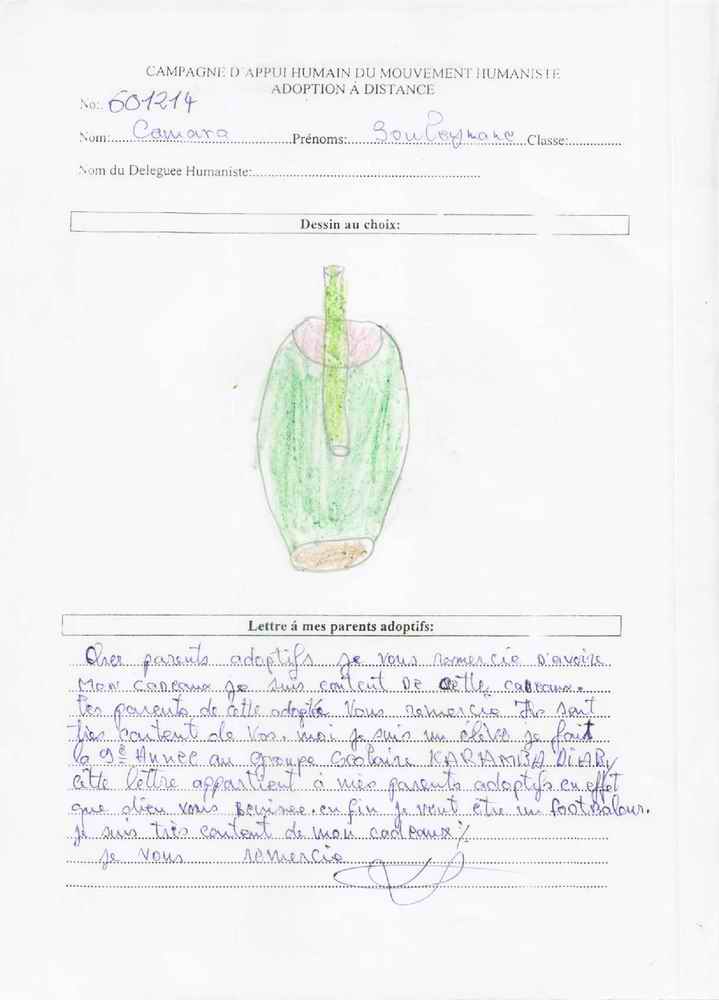 CAMPAGNE D'APPUI HUMAIN DU MOUVEMENT HUMANISTE
ADOPTION Á DISTANCE
No: 601214
Nom: Camara Prénoms: Souleymane Classe:
Nom du Deleguee Humaniste:
Dessin au choix:
Lettre á mes parents adoptifs:
Cher parents adoptifs je vous remercie D'avoire
Mon cadeaux je suis content De cette cadeaux.
Les parents de cette adoptée Vous remercie Ils sont
très content de Vos. moi je suis un élève je fait
la 9è Année au Groupe Scolaire KARAMBA DIABY
cette lettre appartient à mes parents adoptifs en effet
que dieu vous Benisee. en fin je veut être un footbalour.
je suis très content de mon cadeaux %
je vous remercie